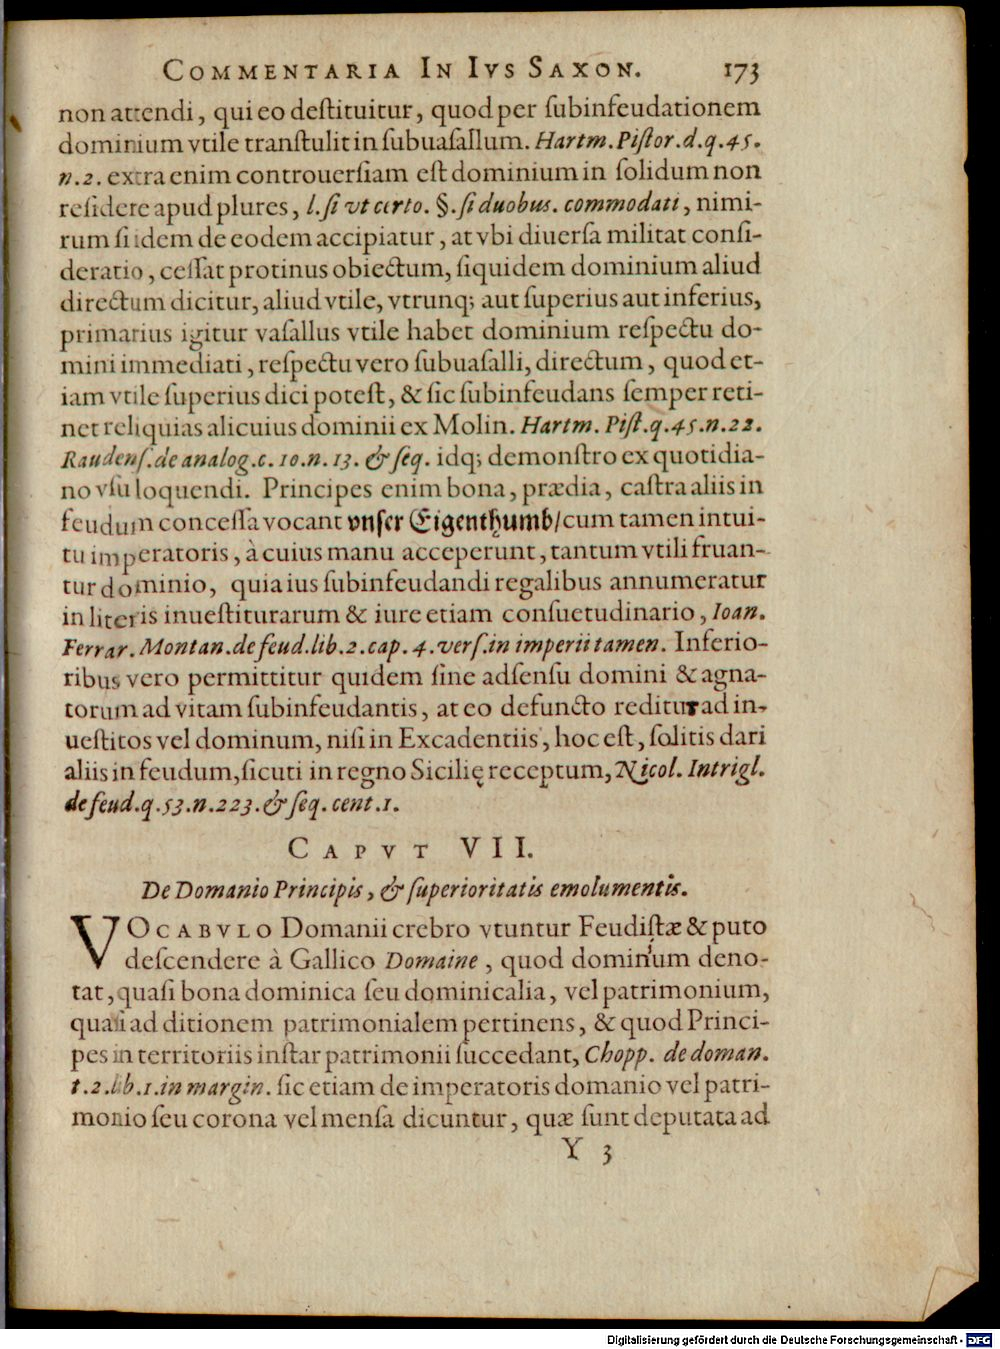 COMMENTARIA IN IVS SAXON. 173
non attendi, qui eo destituitur, quod per subinfeudationem
dominium vtile transtulit in subuasallum. Hartm. Pistor. d. q. 45.
n. 2. extra enim controuersiam est dominium in solidum non
residere apud plures, l. si vt certo. §. si duobus. commodati, nimi-
rum si idem de eodem accipiatur, at vbi diuersa militat consi-
deratio, cessat protinus obiectum, siquidem dominium aliud
directum dicitur, aliud vtile, vtrunq; aut superius aut inferius,
primarius igitur vasallus vtile habet dominium respectu do-
mini immediati, respectu vero subuasalli, directum, quod et-
iam vtile superius dici potest, & sic subinfeudans semper reti-
net reliquias alicuius dominii ex Molin. Hartm. Pist. q. 45. n. 22.
Raudens. de analog. c. 10. n. 13. & seq. idq; demonstro ex quotidia-
no vsu loquendi. Principes enim bona, prædia, castra aliis in
feudum concessa vocant vnser Eigenthumb/ cum tamen intui-
tu imperatoris, à cuius manu acceperunt, tantum vtili fruan-
tur dominio, quia ius subinfeudandi regalibus annumeratur
in literis inuestiturarum & iure etiam consuetudinario, Ioan.
Ferrar. Montan. de feud. lib. 2. cap. 4. vers. in imperii tamen. Inferio-
ribus vero permittitur quidem sine adsensu domini & agna-
torum ad vitam subinfeudantis, at eo defuncto reditur ad in-
uestitos vel dominum, nisi in Excadentiis, hoc est, solitis dari
aliis in feudum, sicuti in regno Sicilię receptum, Nicol. Intrigl.
de feud. q. 53. n. 223. & seq. cent. 1.
CAPVT VII.
De Domanio Principis, & superioritatis emolumentis.
VOCABVLO Domanii crebro vtuntur Feudistæ & puto
descendere à Gallico Domaine, quod dominium deno-
tat, quasi bona dominica seu dominicalia, vel patrimonium,
quasi ad ditionem patrimonialem pertinens, & quod Princi-
pes in territoriis instar patrimonii succedant, Chopp. de doman.
t. 2. lib. 1. in margin. sic etiam de imperatoris domanio vel patri-
monio seu corona vel mensa dicuntur, quæ sunt deputata ad
Y 3
Digitalisierung gefördert durch die Deutsche Forschungsgemeinschaft - DFG